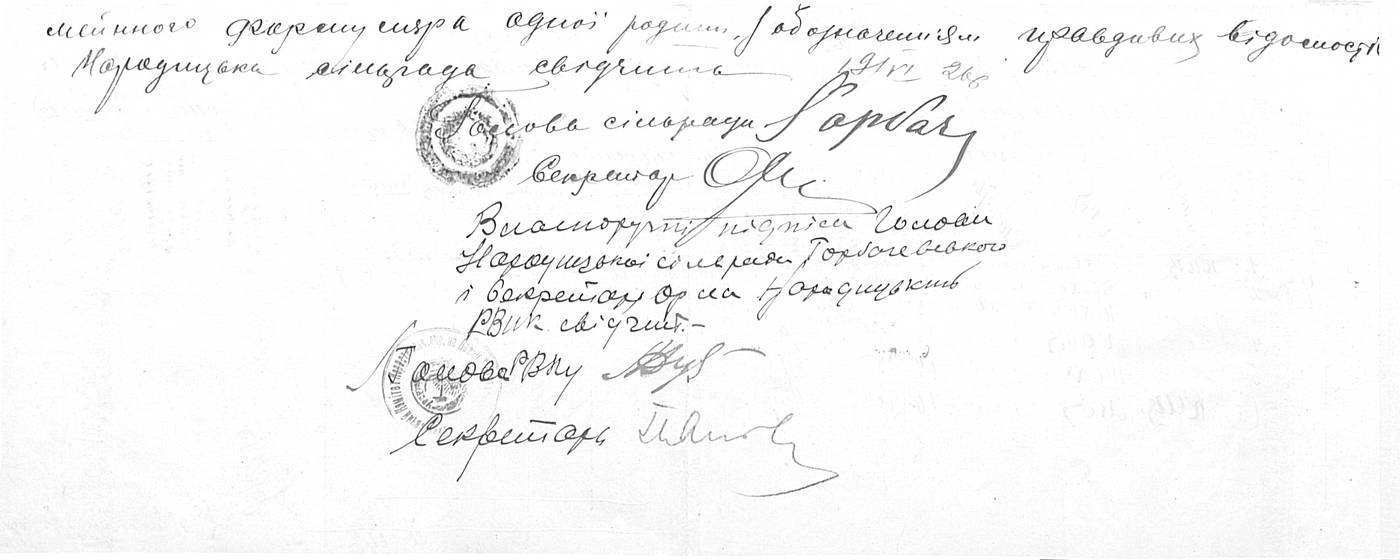 мейнного формуляра одної родини, з обозначенням правдивих відомостів
Народицька сільрада свідчить 191VI 26б
Голова сільради Горбач
Секретар
Власноручні підписи Голови
Народицької сільради Горбачевського
і Секретаря Народицький
РВИК свідчит.–
Голова РВКу
Секретарь